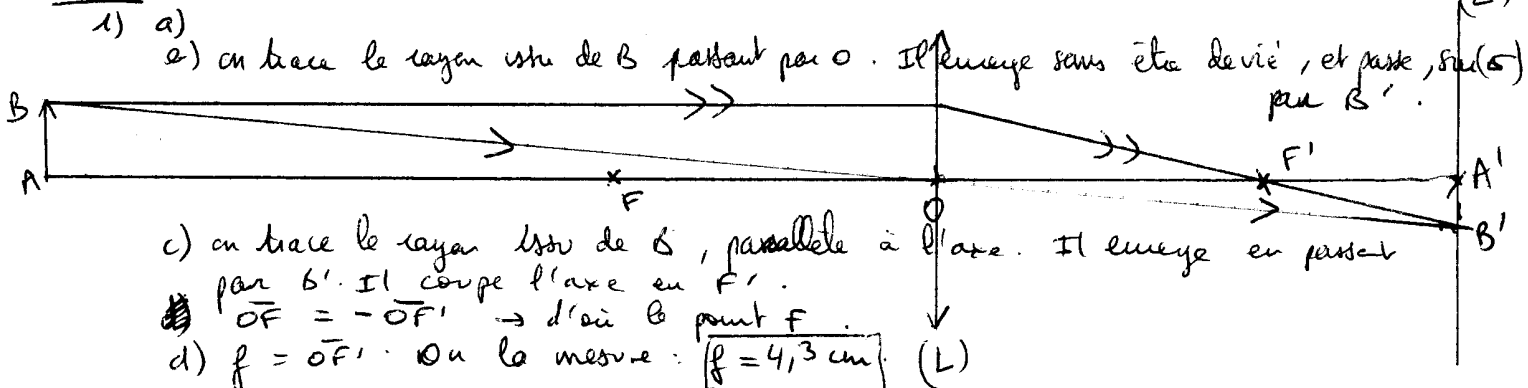 1) a)
b) on trace le rayon issu de B passant par O. Il émerge sans être dévié, et passe, sur (E)
par B'.
B
A
F
O
F'
A'
B'
c) on trace le rayon issu de B, parallèle à l'axe. Il émerge en passant
par B'. Il coupe l'axe en F'.
OF = - OF' → d'où le point F.
d) f = OF'. On la mesure : f = 4,3 cm. (L)